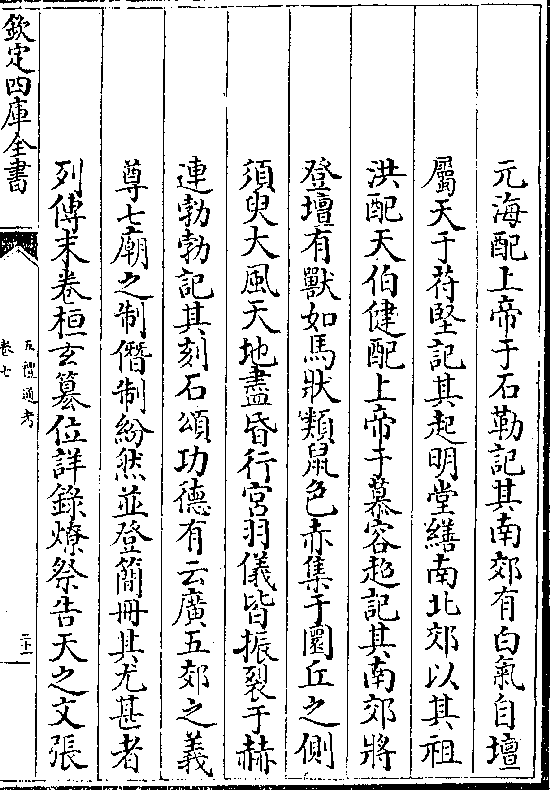 元海配上帝于石勒記其南郊有白氣自壇
屬天于苻堅記其起明堂繕南北郊以其祖
洪配天伯健配上帝于慕容超記其南郊將
登壇有獸如馬狀類鼠色赤集于圜丘之側
須臾大風天地盡昏行宫羽儀皆振裂于赫
連勃勃記其刻石頌功德有云廣五郊之義
尊七廟之制僭制紛然並登簡冊其尤甚者
列傳末卷桓玄簒位詳錄燎祭告天之文張
欽定四庫全書
五禮通考
卷七